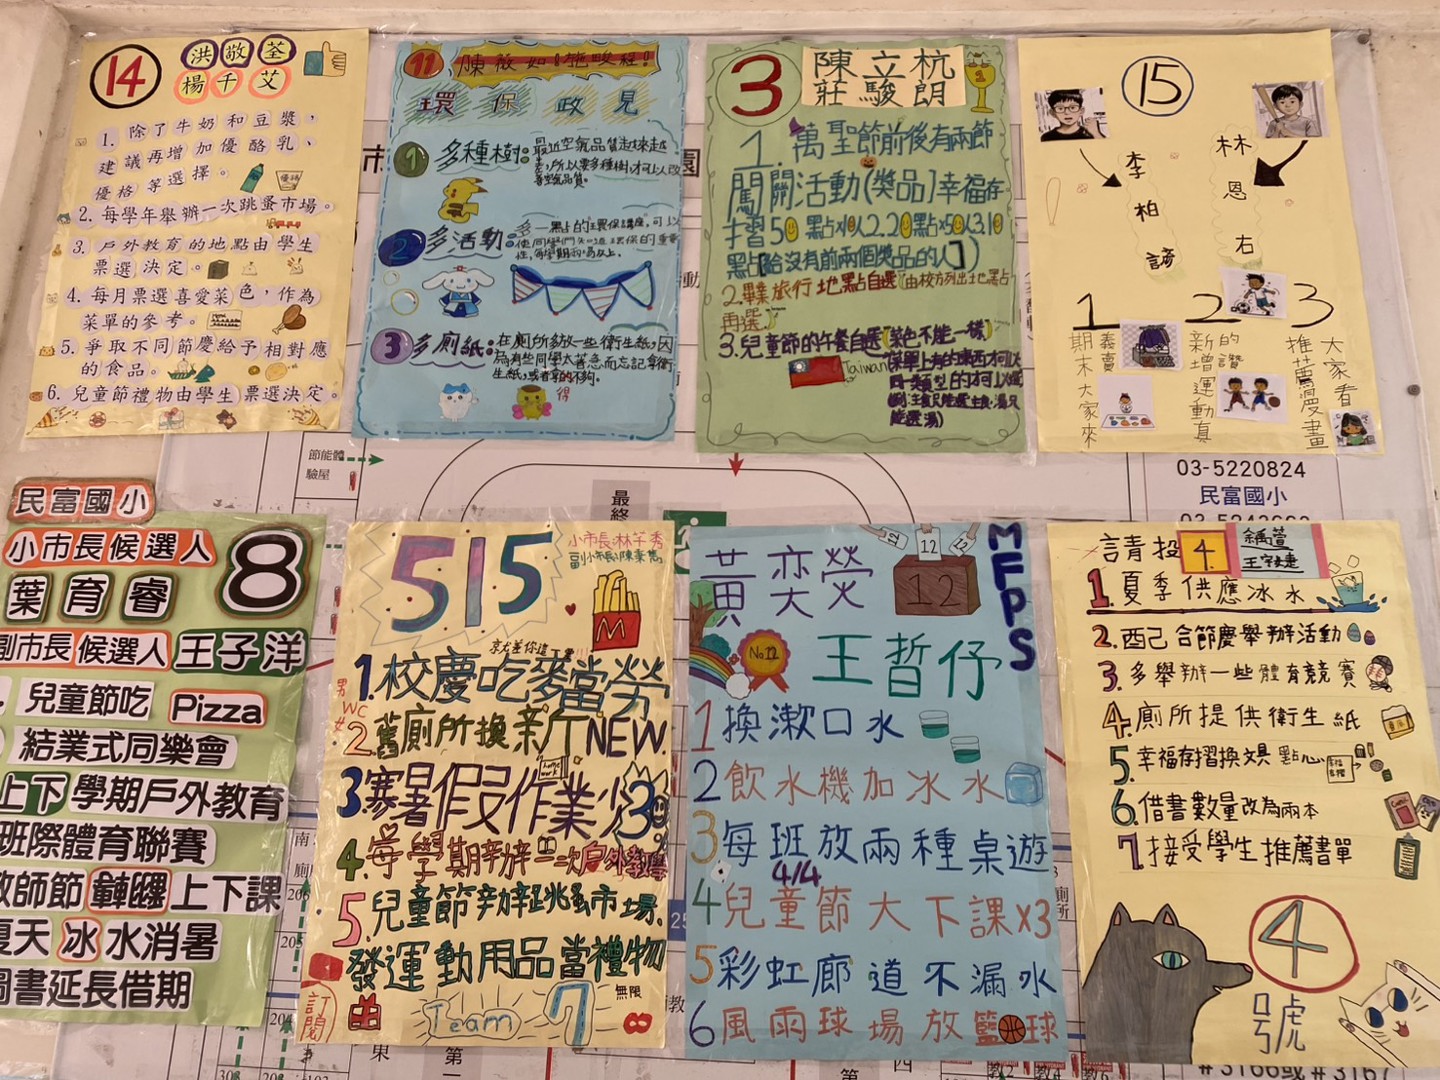 14
洪敬荃
楊千艾
1. 除了牛奶和豆漿，
建議再增加優酪乳、
優格等選擇。
2. 每學年舉辦一次跳蚤市場。
3. 戶外教育的地點由學生
票選決定。
4. 每月票選喜愛菜色，作為
菜單的參考。
5. 爭取不同節慶給予相對應
的食品。
6. 兒童節禮物由學生票選決定。
11
環保政見
1 多種樹:
最近空氣品質越來越
差，所以要多種樹，才可以改
善空氣品質。
2 多活動:
3 多廁紙:
在廁所多放一些衛生紙，因
為有些同學太著急而忘記拿衛
生紙，或者拿的不夠。
3
陳立杭
莊駿朗
1. 萬聖節前後有兩節
闖關活動(獎品)幸福存
摺50點x10人2.20點x50人3.10
點[給沒有前兩個獎品的人]
2.畢業旅行地點自選(由校方列出地點
再選)
3.兒童節的午餐自選(菜色不能一樣)
Taiwan
15
李柏諺
林恩右
1 2 3
期末大家來
義賣
新增運動真
的讚
推薦漫畫
大家看
節能體
驗屋
最終
03-5220824
民富國小
民富國小
小市長候選人
8
葉育睿
副市長候選人 王子洋
兒童節吃 Pizza
結業式同樂會
上下學期戶外教育
班際體育聯賽
教師節 上下課
夏天冰水消暑
圖書延長借期
515
小市長:林芊秀
1.校慶吃麥當勞
男WC女
2.舊廁所換新NEW.
3.寒暑假作業少
home work
4.每學期辦一次戶外教學
5.兒童節辦跳蚤市場.
發運動用品當禮物
Team 7
無限
黃奕熒
12
12
MFPS
No.12
王晢伃
1 換漱口水
2 飲水機加冰水
3 每班放兩種桌遊
4/4
4 兒童節大下課x3
5 彩虹廊道不漏水
6 風雨球場放籃球
請投4.
1. 夏季供應冰水
2. 酉己合節慶舉辦活動
3. 多舉辦一些體育競賽
4. 廁所提供衛生紙
5. 幸福存摺換文具點心
6. 借書數量改為兩本
7. 接受學生推薦書單
4
號